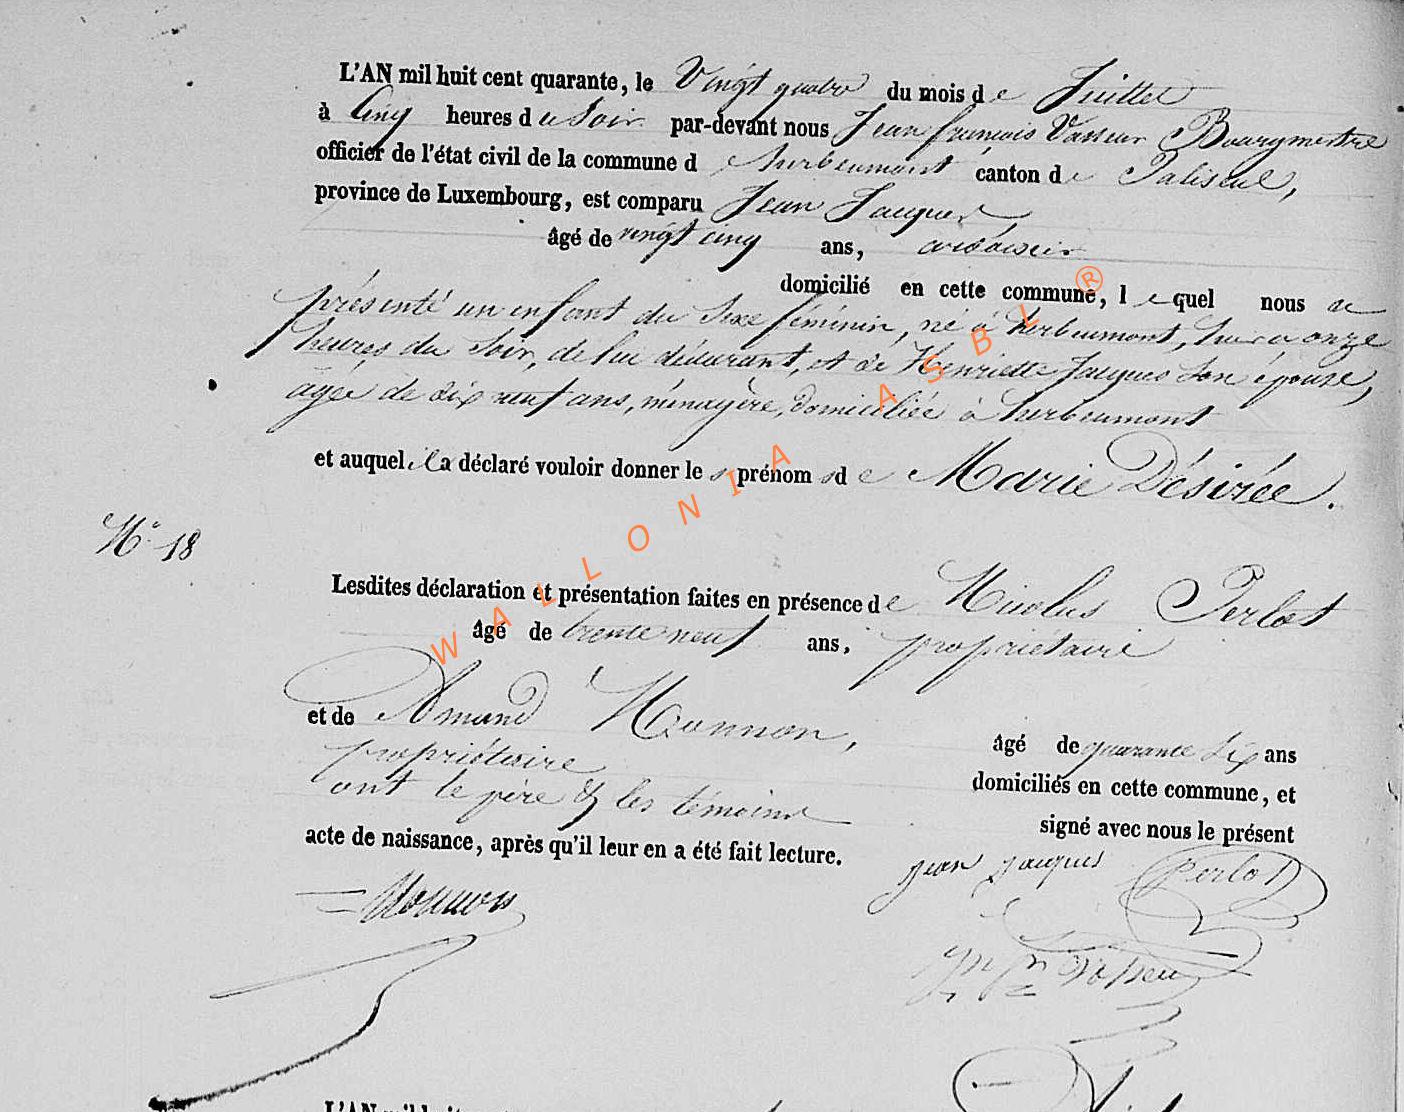 L'AN mil huit cent quarante, le Vingt quatre du mois de Juillet
à Cinq heures du Soir par-devant nous Jean françois Vasseur Bourgmestre
officier de l'état civil de la commune d'herbeumont canton de Paliseul,
province de Luxembourg, est comparu Jean Jacques
âgé de vingt cinq ans, ardoisier
domicilié en cette commune, lequel nous a
présenté un enfant du Sexe féminin, né à herbeumont, hier a onze
heures du Soir, de lui déclarant, et de Henriette Jacques Son épouse,
âgée de dix neuf ans, ménagère, domiciliée à herbeumont
et auquel il a déclaré vouloir donner les prénoms de Marie Désirée.
N° 18
Lesdites déclaration et présentation faites en présence de Nicolas Perlot
âgé de trente neuf ans, propriétaire
et de Amand Monnon, âgé de quarante six ans
propriétaire domiciliés en cette commune, et
ont le père & les témoins signé avec nous le présent
acte de naissance, après qu'il leur en a été fait lecture.
jean jacques Perlot
Monnon
WALLONIA ASBL ®